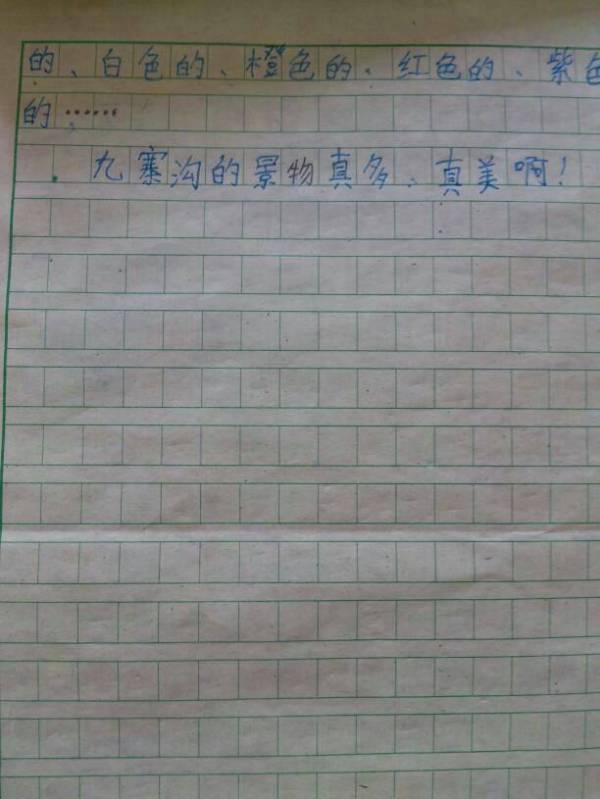 的、白色的、橙色的、红色的、紫色
的……
九寨沟的景物真多、真美啊!